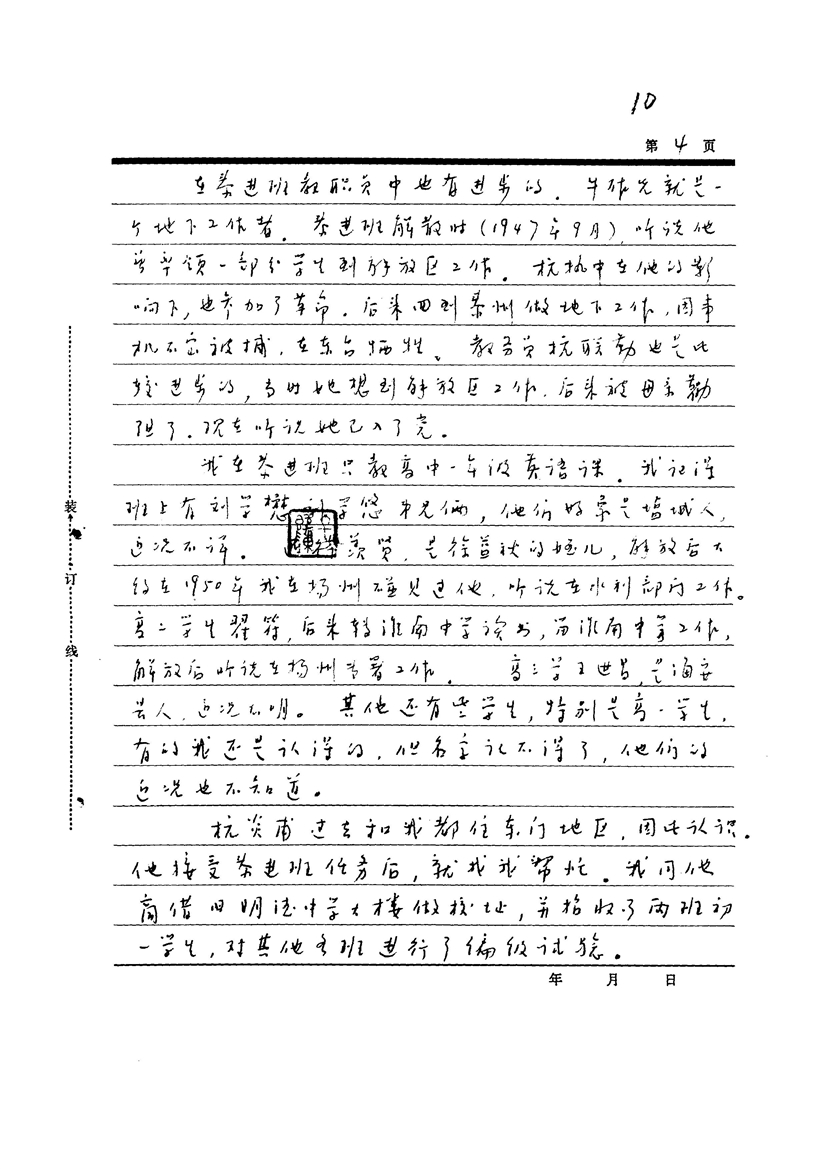 10
第 4 页
在泰进班教职员中也有进步的。牛作先就是一
个地下工作者。泰进班解散时(1947年9月),听说他
曾率领一部分学生到解放区工作。杭执中在他的影
响下,也参加了革命。后来回到泰州做地下工作,因事
机不密被捕,在东台牺牲。教务员杭联勤也是比
较进步的,当时她想到解放区工作,后来被母亲劝
阻了。现在听说她已入了党。
我在泰进班只教高中一年级英语课。我记得
班上有刘学懋、刘学悠弟兄俩,他们好象是盐城人,
近况不详。羡贤,是徐蔓秋的侄儿,解放后大
约在1950年我在扬州碰见过他,听说在水利部门工作。
高二学生翟符,后来转淮南中学读书,留淮南中学工作,
解放后听说在扬州专署工作。高三学王世昌,是海安
县人,近况不明。其他还有些学生,特别是高一学生,
有的我还是认得的,但名字记不得了,他们的
近况也不知道。
杭炎甫过去和我都住东门地区,因此认识。
他接受泰进班任务后,就找我帮忙。我同他
商借旧明德中学大楼做校址,并招收了两班初
一学生,对其他各班进行了编级试验。
年 月 日
装
订
线